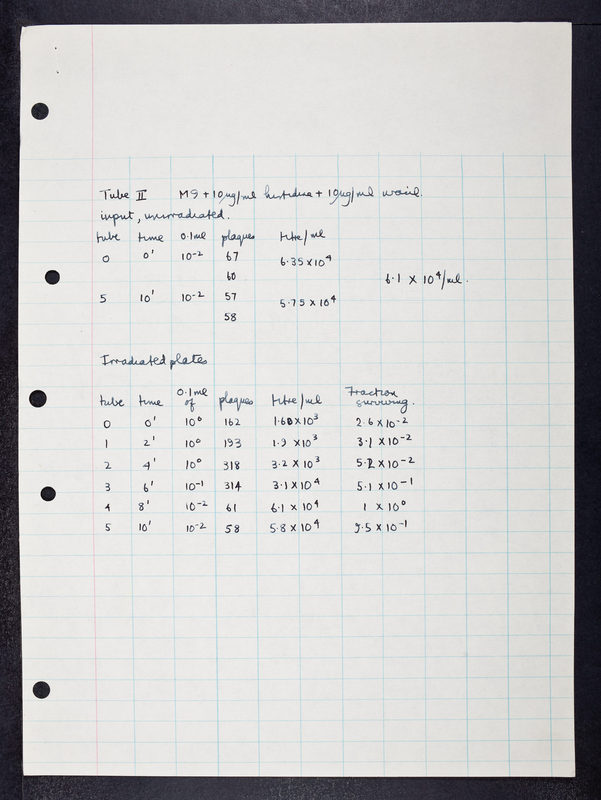 Tube II M9 + 10µg/ml histidine + 10µg/ml uracil.
input, unirradiated.
tube time 0.1ml plaques titre/ml
0 0' 10⁻² 67 6.35 x 10⁴
60
6.1 x 10⁴/ml.
5 10' 10⁻² 57 5.75 x 10⁴
58
Irradiated plates
tube time 0.1ml of plaques titre/ml Fraction surviving.
0 0' 10⁰ 162 1.60 x 10³ 2.6 x 10⁻²
1 2' 10⁰ 193 1.9 x 10³ 3.1 x 10⁻²
2 4' 10⁰ 318 3.2 x 10³ 5.2 x 10⁻²
3 6' 10⁻¹ 314 3.1 x 10⁴ 5.1 x 10⁻¹
4 8' 10⁻² 61 6.1 x 10⁴ 1 x 10⁰
5 10' 10⁻² 58 5.8 x 10⁴ 9.5 x 10⁻¹